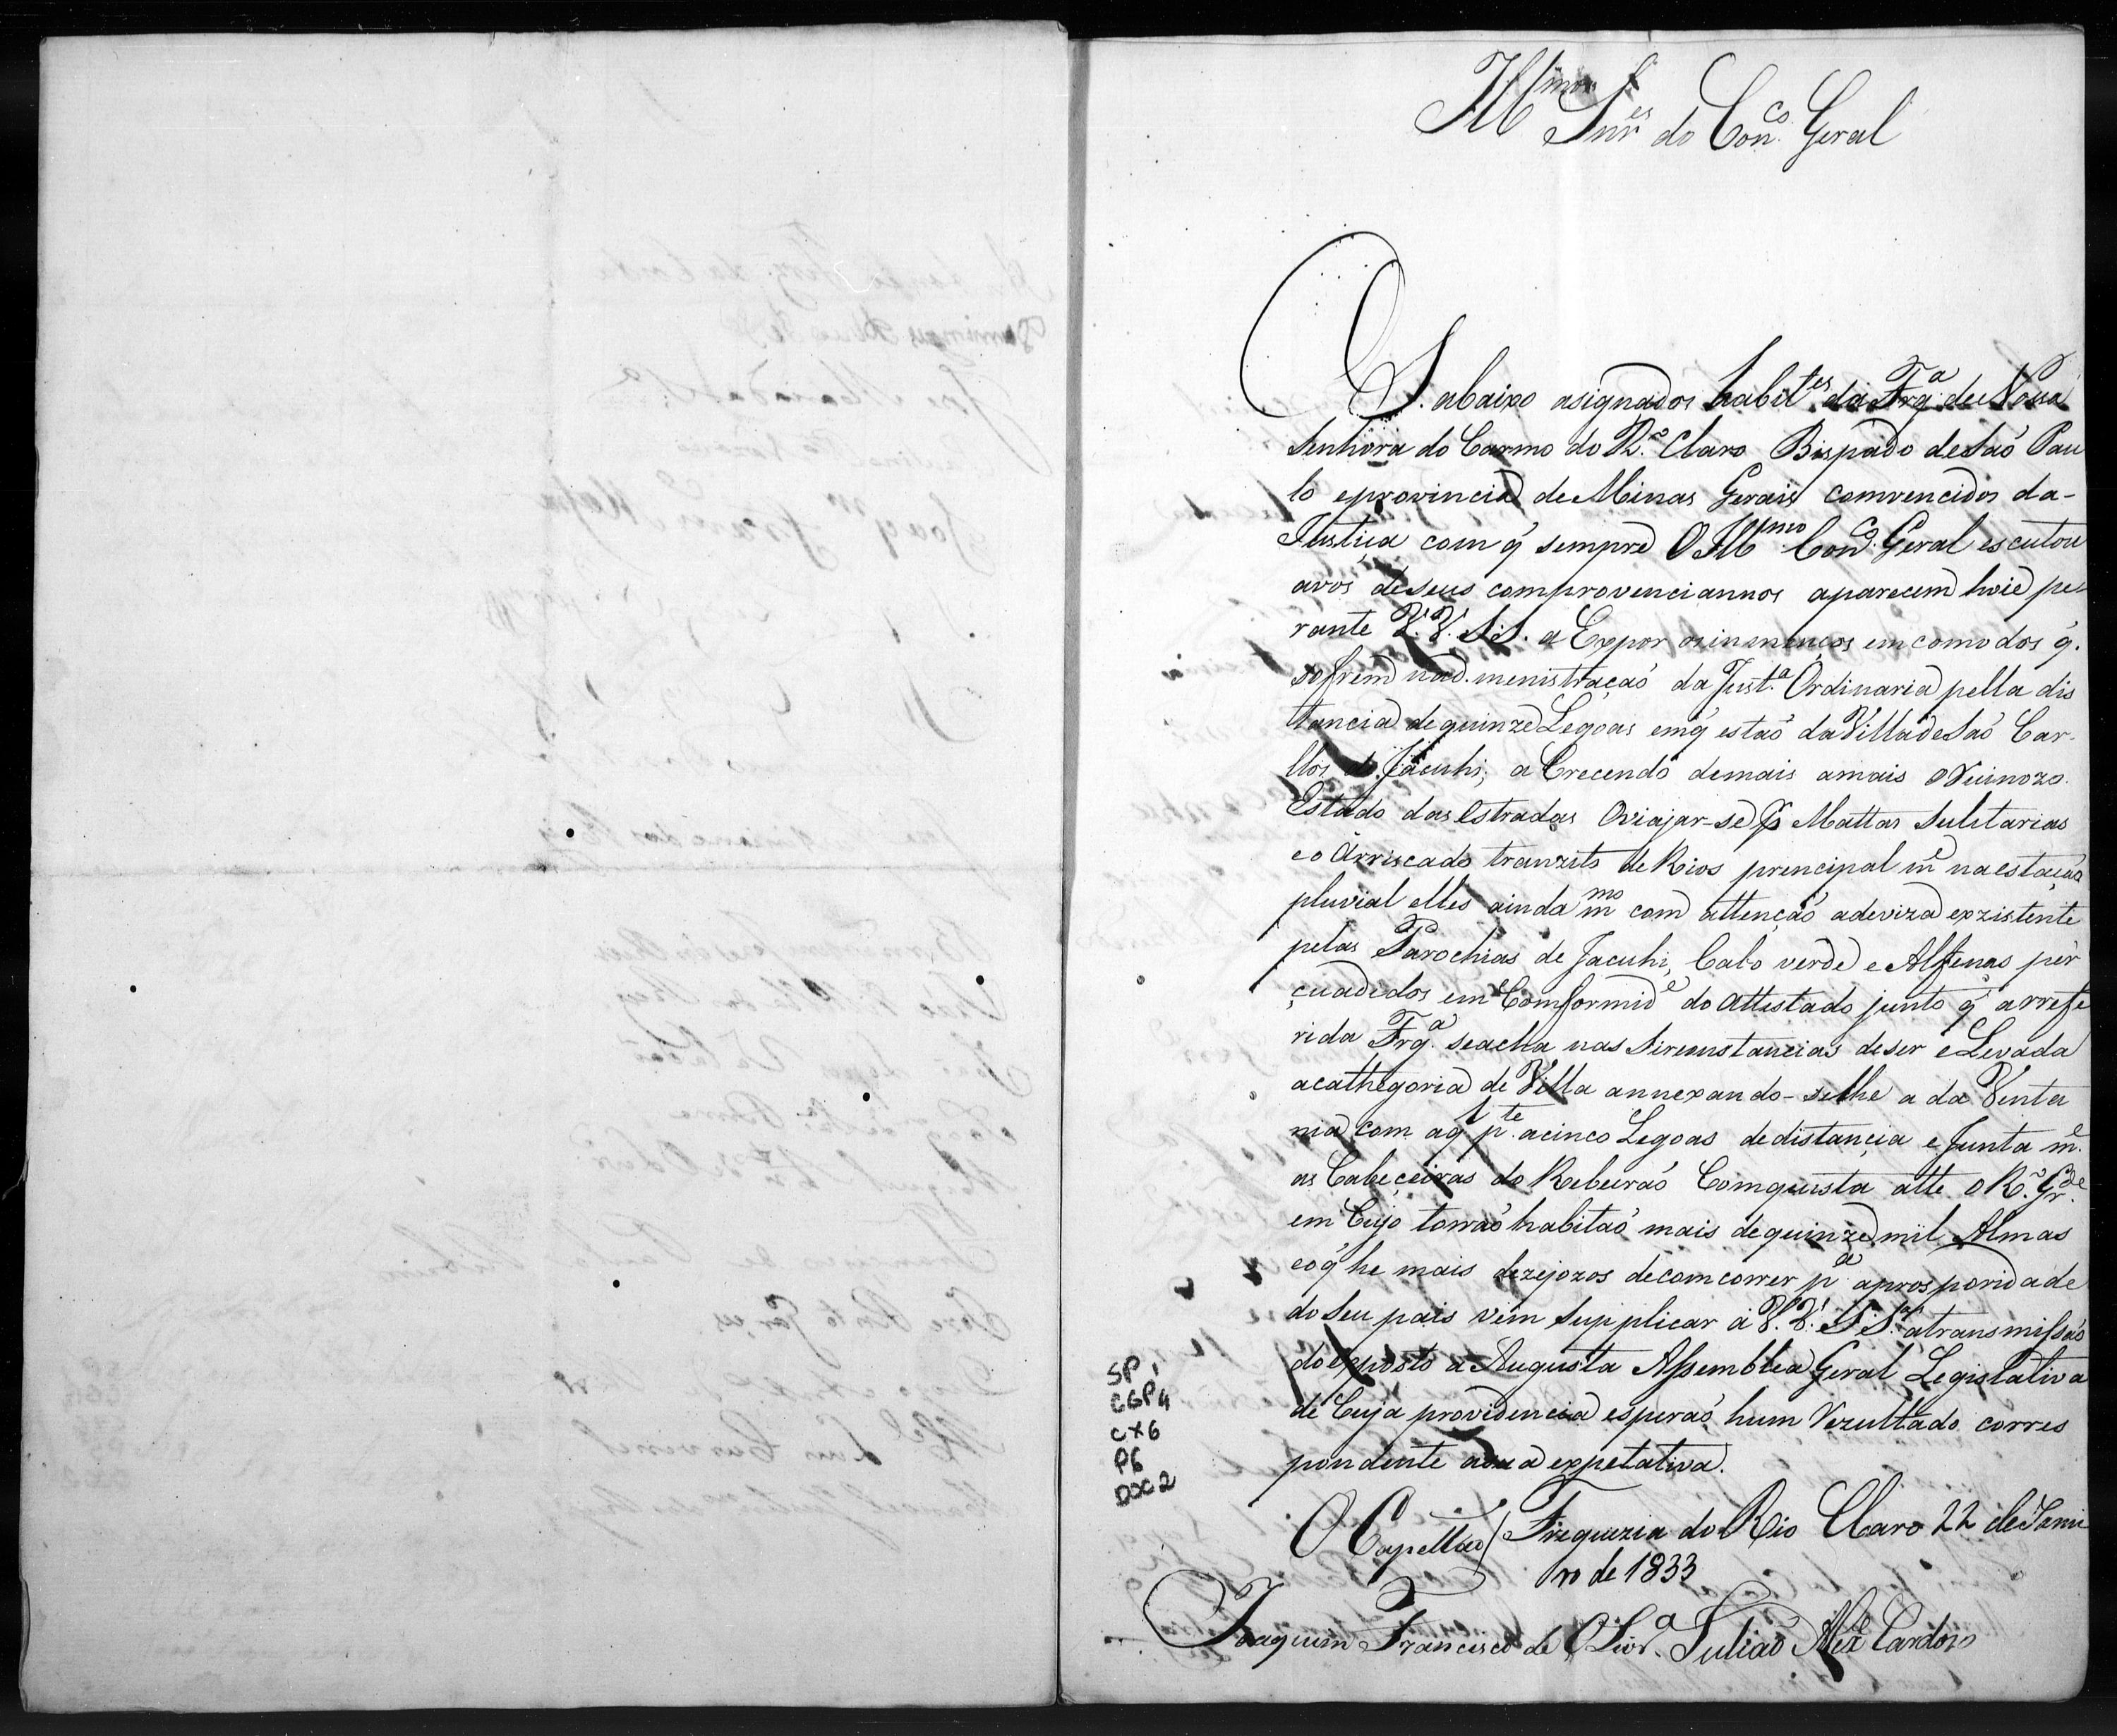 Ill.mos Snr.es do Con.co Geral
OS abaixo asignados habit.tes da Frg.a de Nossa
Senhora do Carmo do R.o Claro Bispado de Saõ Pau
lo e provincia de Minas Gerais comvencidos da-
Justiça com q̃ sempre O Ill.mo Con.co Geral escutou
avos de seus comprovenciannos aparecem hoie pe-
rante V.V. S.S. a Expor os inmenços emcomodos q̃.
sofrem na d.menistraçaõ da Just.a Ordinaria pella dis
tancia de quinze Legoas em q̃ estaõ da Villa de Saõ Car-
llos de Jacuhi; a Crecendo demais amais o Ruinozo
Estado das estradas O viajar-se p Mattas Sulitarias
e o Arriscado tranzito de Rios principal m.e na estaçaõ
pluvial elles ainda m.mo com attençaõ a deviza exzistente
pelas Parochias de Jacuhi, Cabo verde e Alfenas per
çuadedos em Comformid.e do Attestado junto q̃ a rrefe
rida Frg.a se acha nas Sircunstancias de ser eLevada
a cathegoria de Villa annexando-selhe a da Venta
nia com a q.l p.te a cinco Legoas de distançia e Junta m.e
as Cabeçeiras do Rebeiraõ Comquista atte o R.o Gr.de
em Cujo torraõ habitaõ mais de quinze mil Almas
e o q̃ he mais dezejozos de comcorrer p.a a prosporidade
do Seu pais vem Supplicar á V.V. S.S.as a transmissaõ
do exposto a Augusta Assemblea Geral Legislativa
de Cuja providencia esperaõ hum Rezulttado corres
pondente a sua expetativa.
O Capellaõ / Fizguezia do Rio Claro 22 de Janei
ro de 1833
Joaquim Francisco de Oliv.a Juliaõ Cardozo
SP 1
CGP4
CX6
P6
DOC2